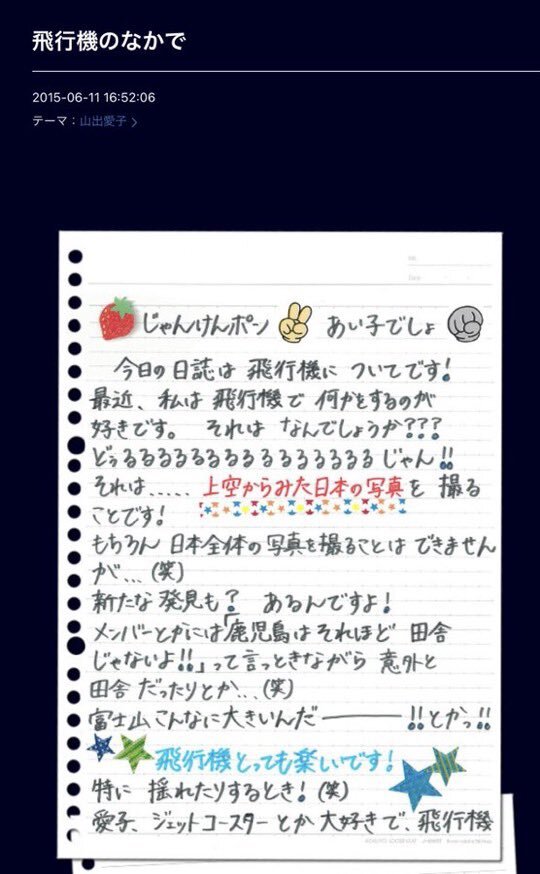 飛行機のなかで
2015-06-11 16:52:06
テーマ：山出愛子 >
No.
Date
じゃんけんポン あい子でしょ
今日の日誌は 飛行機に ついてです!
最近、私は 飛行機で 何かをするのが
好きです。 それは なんでしょうか???
どぅるるるるるるるるるるるるるるるる じゃん!!
それは..... 上空からみた日本の写真を 撮る
ことです!
もちろん 日本全体の写真を撮ることは できません
が...(笑)
新たな 発見も? あるんですよ!
メンバーとかには「鹿児島は それほど 田舎
じゃないよ!!」って言っときながら 意外と
田舎 だったりとか...(笑)
富士山、こんなに大きいんだ―――!!とかっ!!
飛行機とっても楽しいです!
特に 揺れたりするとき! (笑)
愛子、ジェットコースターとか 大好きで、飛行機